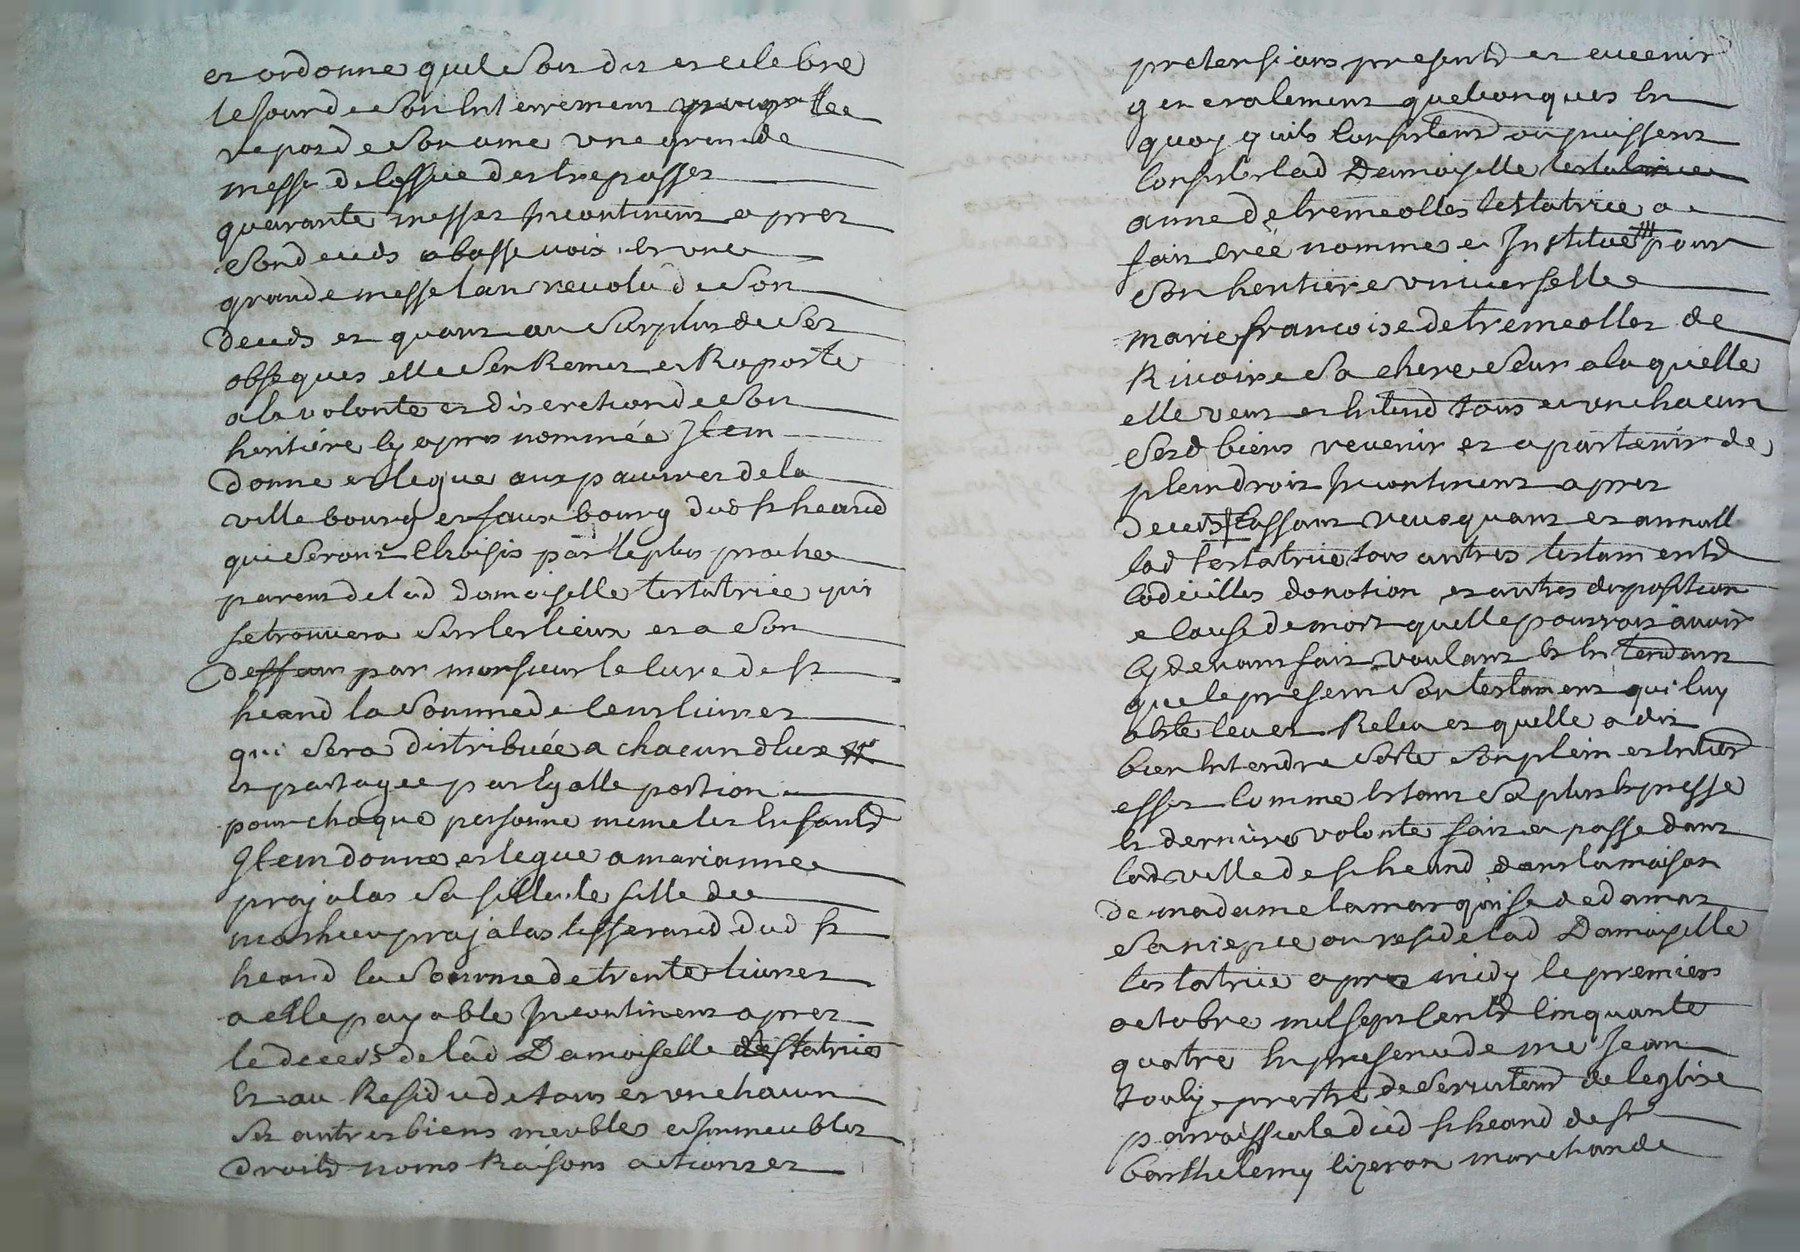 et ordonne quil soit dit et celebre
le jour de son Enterrement pour le
repos de son ame une grande
messe de loffice des trepasses
quarante messes Incontinent apres
son deceds a basse voix et une
grande messe lan revolu de son
deceds et quant au surplus de ses
obseques elle sen Remet et Raporte
a la volonte et discretion de son
heritiere cy apres nommée Item
donne et legue aux pauvres de la
ville bourg et faux bourg dud st heand
qui seront Choisis par le plus proche
parent de lad damoiselle testatrice qui
se trouvera sur les lieux et a son
deffaut par monsieur le cure de st
heand la somme de cent livres
qui sera distribuée a chacun dEux
et partagee par Egalle portion
pour chaque personne meme les Enfants
Item donne et legue a marianne
prajalas sa filleule fille de
mathieu prajalas tisserand dud st
heand la somme de trente livres
a elle payable Incontinent apres
le deceds de lad Damoiselle testatrice
Et au Residu de tous et un chacun
ses autres biens meubles et Immeubles
droits noms Raisons actions et
pretensions presents et avenir
generalement quelconques En
quoy quils Consistent ou puissent
Consister lad Damoiselle
anne de tremeolles testatrice a
fait creé nommé et Institué pour
son heritiere universelle
marie francoise de tremeolles de
Rivoire sa chere seur a laquelle
elle veut et Entend tous et un chacun
sesd biens revenir et apartenir de
plein droit Incontinent apres
deceds Cassant revoquant et annull
lad testatrice tous autres testaments
codicilles donation et autres disposition
a cause de mort quelle pourroit avoir
cy devant fait voulant Et Entendant
que le present son testament qui luy
a este leu et Releu et quelle a dit
bien Entendre sorte son plein et Entier
effet Comme Estant sa plus Expresse
Et derniere volonte fait et passe dans
lad ville de st heand dans la maison
de madame la marquise de damas
sa niepce ou reside lad Damoiselle
testatrice apres midy le premier
octobre mil sept cents cinquante
quatre En presence de me Jean
Jouly prestre desservitent de leglise
parroissiale dud st heand de sr
barthelemy lizeron marchand